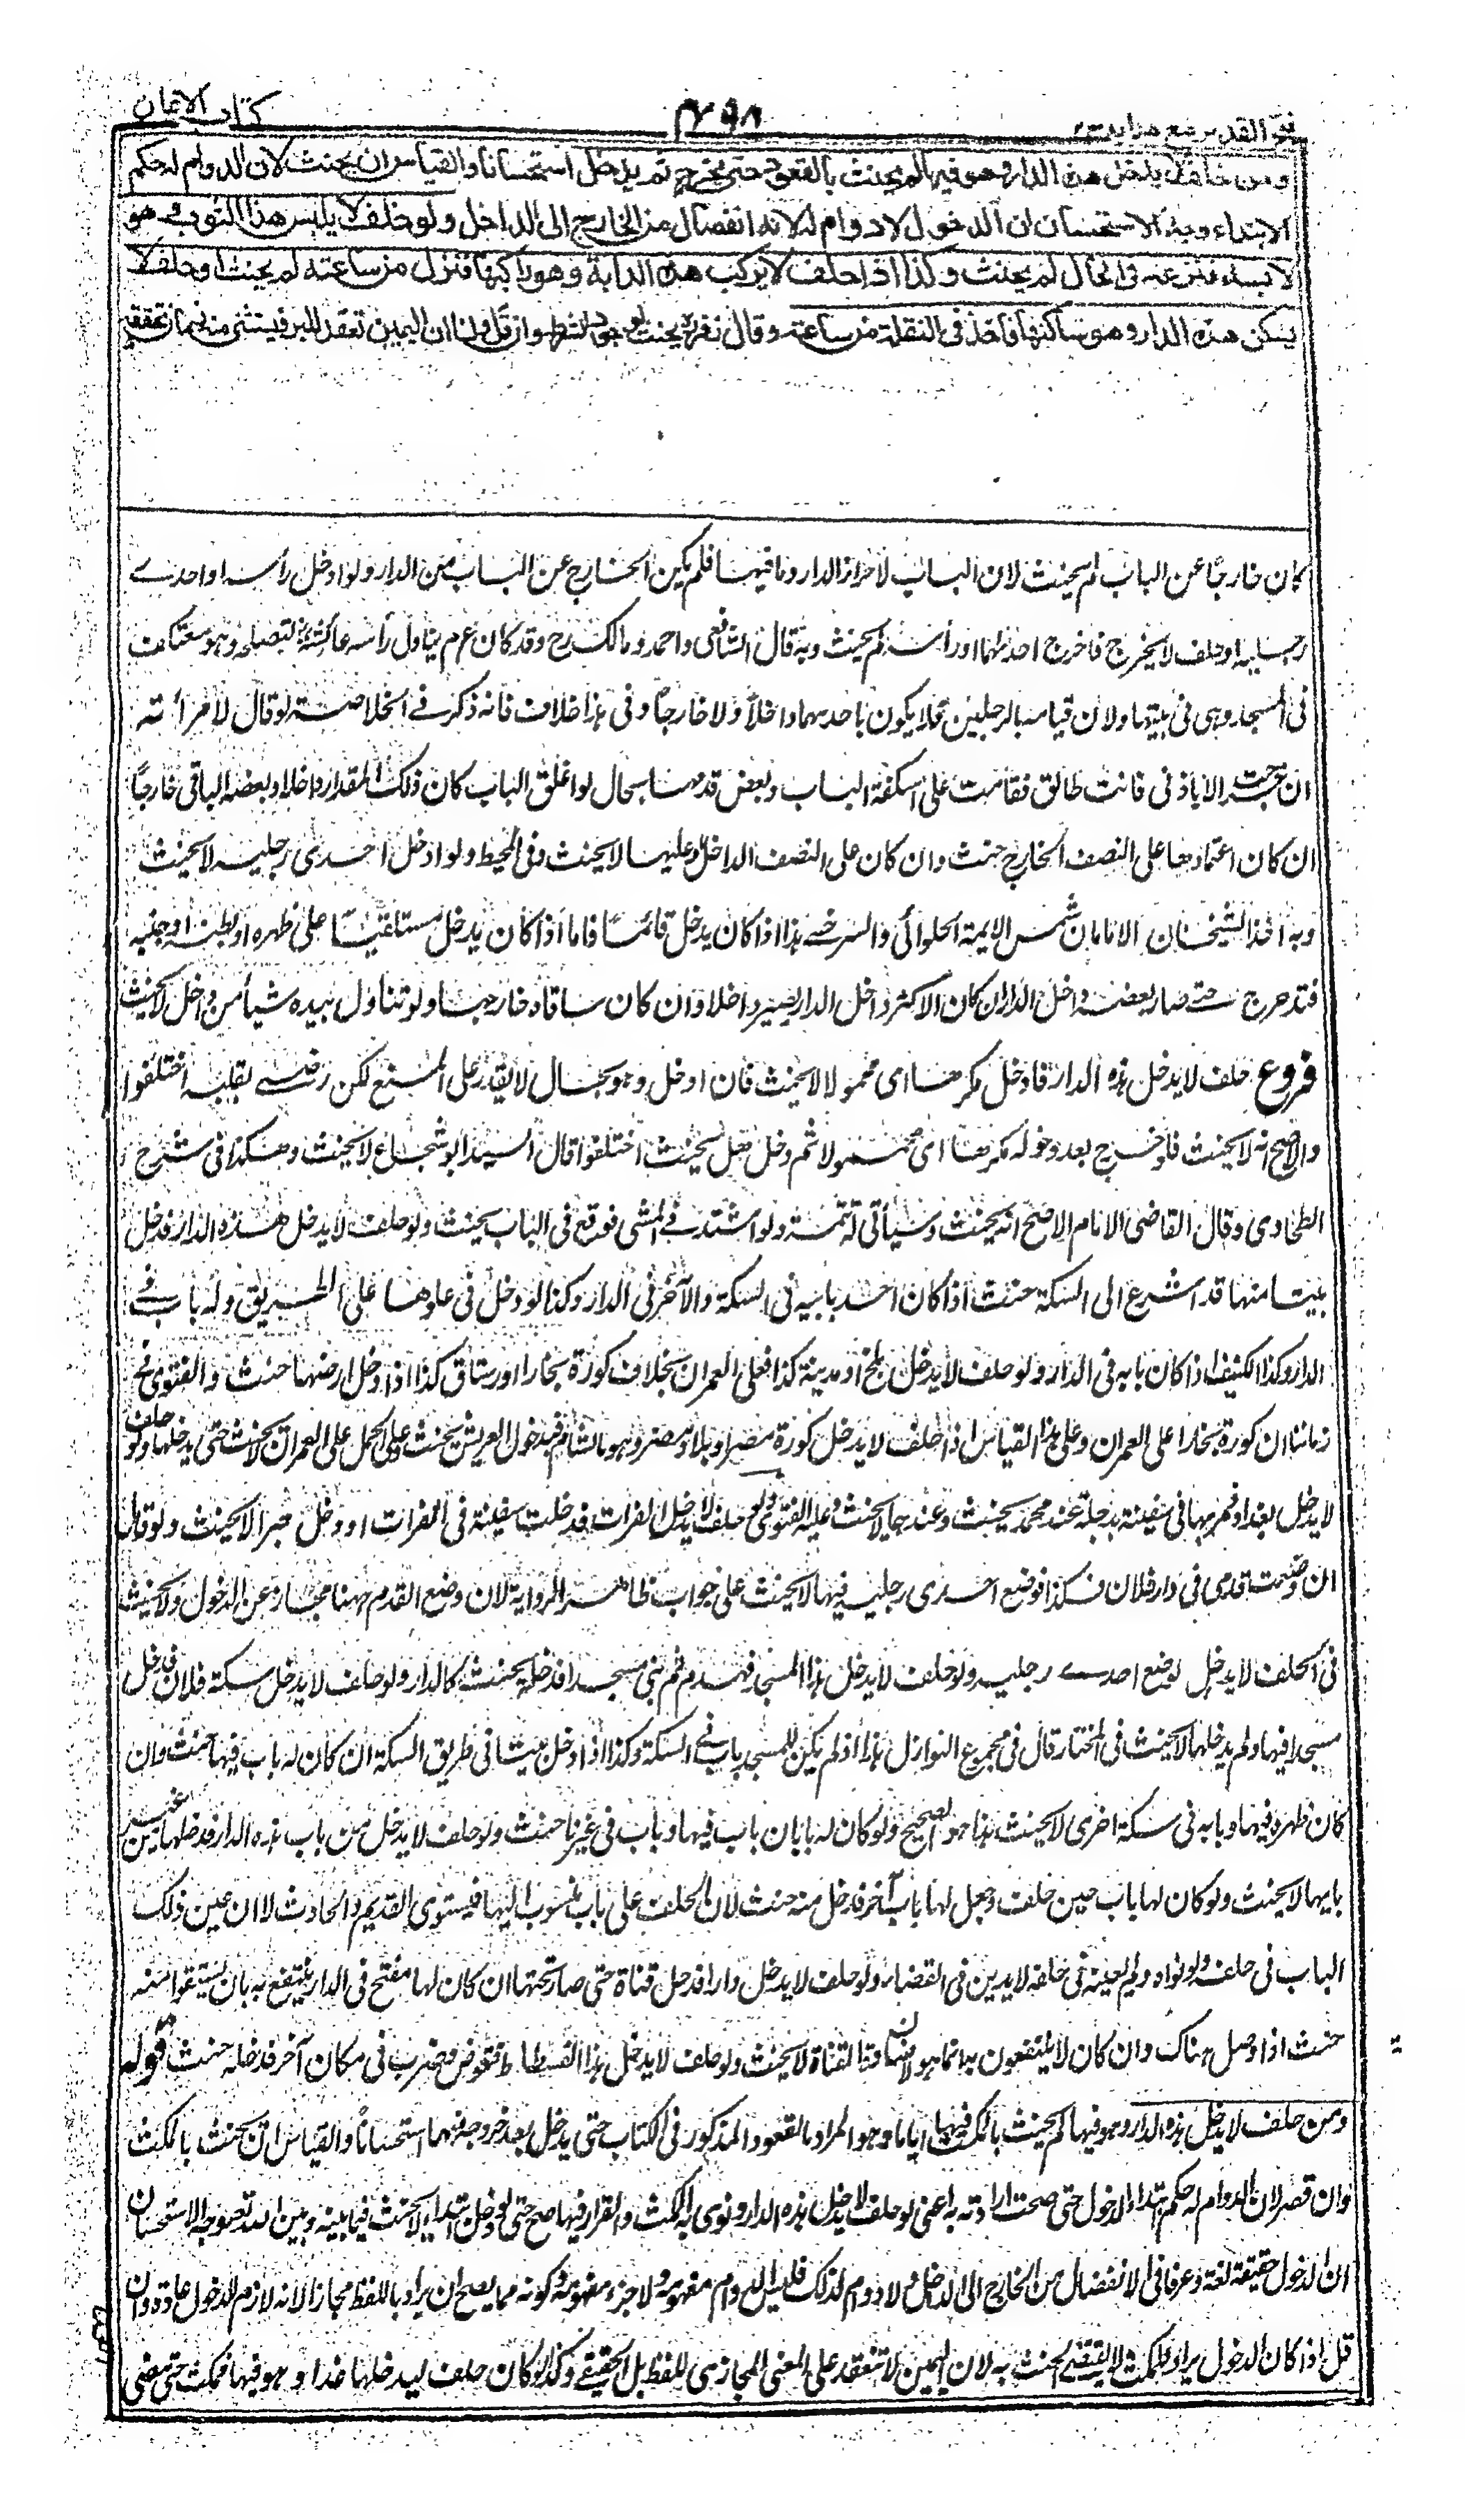 فتح القدير مع هدايه
۴۹۸
كتاب الايمان
ومن حلف لا يدخل هذه الدار وهو فيها لم يحنث بالقعود حتى يخرج ثم يدخل استحسانا والقياس ان يحنث لان الدوام له حكم
الابتداء وجه الاستحسان ان الدخول لا دوام له لانه انفصال من الخارج الى الداخل ولو حلف لا يلبس هذا الثوب وهو
لابسه فنزعه فى الحال لم يحنث وكذا اذا حلف لا يركب هذه الدابة وهو راكبها فنزل من ساعته لم يحنث او حلف لا
يسكن هذه الدار وهو ساكنها فاخذ فى النقلة من ساعته وقال زفر يحنث لوجود الشرط وان قل ولنا ان اليمين تعقد للبر فيستثنى منه زمان تحققه
كان خارجا عن الباب لم يحنث لان الباب لاحراز الدار وما فيها فلم يكن الخارج عن الباب من الدار ولو ادخل رأسه او احدى
رجليه او حلف لا يخرج فاخرج احداهما او رأسه لم يحنث وبه قال الشافعى واحمد ومالك رح وقد كان عم يناول رأسه عائشة لتصلحه وهو معتكف
فى المسجد وهى فى بيتها ولان قيامه بالرجلين فلا يكون باحدهما داخلا ولا خارجا وفى هذا خلاف فانه ذكر فى الخلاصة لو قال لامرأته
ان خرجت الا باذنى فانت طالق فقامت على اسكفة الباب وبعض قدمها بحال لو اغلق الباب كان ذلك المقدار داخلا وبعضه الباقى خارجا
ان كان اعتمادها على النصف الخارج حنث وان كان على النصف الداخل او عليهما لا يحنث وفى المحيط ولو ادخل احدى رجليه لا يحنث
وبه اخذ الشيخان الامامان شمس الايمة الحلوائى والسرخسى هذا اذا كان يدخل قائما فاما اذا كان يدخل مستلقيا على ظهره او بطنه او جنبه
فتدحرج حتى صار بعضه داخل الدار ان كان الاكثر داخل الدار يصير داخلا وان كان ساقاه خارجا ولو تناول بيده شيأ من داخل لا يحنث
فروع حلف لا يدخل هذه الدار فادخل مكرها اى محمولا لا يحنث فان ادخل وهو بحال لا يقدر على المنع لكن رضى بقلبه اختلفوا
والاصح انه لا يحنث فلو خرج بعد دخوله مكرها اى محمولا ثم دخل هل يحنث اختلفوا قال السيد ابو شجاع لا يحنث وهكذا فى شرح
الطحاوى وقال القاضى الامام الاصح انه يحنث وسيأتى له تتمة ولو اشتد فى المشى فوقع فى الباب يحنث ولو حلف لا يدخل هذه الدار فدخل
بيتا منها قد اشرع الى السكة حنث اذا كان احد بابيه فى السكة والآخر فى الدار وكذا لو دخل فى علوها على الطريق وله باب فى
الدار وكذا الكنيف اذا كان بابه فى الدار ولو حلف لا يدخل بلخ او مدينة كذا فعلى العمران بخلاف كورة بخارا او رستاق كذا اذا دخل ارضها حنث والفتوى فى
زماننا ان كورة بخارا على العمران وعلى هذا القياس اذا حلف لا يدخل كورة مصر او بلاد مصر وهو بالشام فبدخول العريش يحنث وعلى الحمل على العمران لا يحنث حتى يدخلها ولو حلف
لا يدخل بغداد فمر بها فى سفينة بدجلة عند محمد يحنث وعندهما لا يحنث وعليه الفتوى ولو حلف لا يدخل الفرات فدخلت سفينة فى الفرات او دخل جسرا لا يحنث ولو قال
ان وضعت قدمى فى دار فلان فكذا فوضع احدى رجليه فيها لا يحنث على جواب ظاهر الرواية لان وضع القدم ههنا مجاز عن الدخول ولا يحنث
فى الحلف لا يدخل لوضع احدى رجليه ولو حلف لا يدخل هذا المسجد فهدم ثم بنى مسجدا فدخله يحنث كالدار ولو حلف لا يدخل سكة فلان فدخل
مسجدا فيها ولم يدخلها لا يحنث فى المختار قال فى مجموع النوازل هذا اذا لم يكن للمسجد باب فى السكة وكذا اذا دخل بيتا فى طريق السكة ان كان له باب فيها حنث وان
كان ظهره فيها وبابه فى سكة اخرى لا يحنث هذا هو الصحيح ولو كان له بابان باب فيها وباب فى غيرها حنث ولو حلف لا يدخل من باب هذه الدار فدخلها من غير
بابها لا يحنث ولو كان لها باب حين حلف وجعل لها باب آخر فدخل منه حنث لان الحلف على باب منسوب اليها فيستوى القديم والحادث لا ان عين ذلك
الباب فى حلفه ولو نواه ولم يعينه فى حلفه لا يدين فى القضاء ولو حلف لا يدخل دارا فدخل قناة حتى صار تحتها ان كان لها مفتح فى الدار ينتفع به بان يستقوا منه
حنث اذا وصل هناك وان كان لا ينتفعون به انما هو لاضاءة القناة لا يحنث ولو حلف لا يدخل هذا الفسطاط فقوض وضرب فى مكان آخر فدخله حنث قوله
ومن حلف لا يدخل هذه الدار وهو فيها لم يحنث بالمكث فيها اياما وهو المراد بالقعود المذكور فى الكتاب حتى يدخل بعد خروجه منها استحسانا والقياس ان يحنث بالمكث
وان قصر لان الدوام له حكم ابتداء الدخول حتى صحت ارادته به اعنى لو حلف لا ادخل هذه الدار ونوى به المكث والقرار فيها صح حتى لو دخل ابتداء لا يحنث فيما بينه وبين الله تعـ وجه الاستحسان
ان الدخول حقيقة لغة وعرفا فى الانفصال من الخارج الى الداخل ولا دوام لذلك فليس الدوام مفهومه ولا جزء مفهومه وكونه مما يصلح ان يراد باللفظ مجازا لانه لازم للدخول عادة وان
قل اذا كان الدخول يراد للمكث لا يقتضى الحنث به لان اليمين لا تنعقد على المعنى المجازى للفظ بل الحقيقى وكذا لو كان حلف ليدخلها غدا وهو فيها فمكث حتى مضى